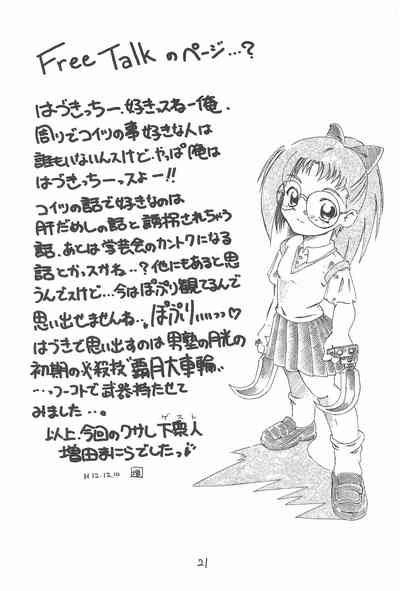 Free Talk のページ…?
はづきっちー、好きっスねー俺.
周りでコイツの事好きな人は
誰もいないんスけど、やっぱ俺は
はづきっちーっスよー!!
コイツの話で好きなのは
肝だめしの話と誘拐されちゃう
話、あとは学芸会のカントクになる
話とかっスかね…?他にもあると思
うんですけど…今はぽぷり観てるんで
思い出せませんね…。ぽぷりぃぃっっ♡
はづきで思い出すのは男塾の月光の
初期の必殺技"覇月大車輪"
…っつーコトで武器持たせて
みました…。
以上、今回のクサレ下衆人
ゲスト
増田まにらでしたっ
H12.12.10
21